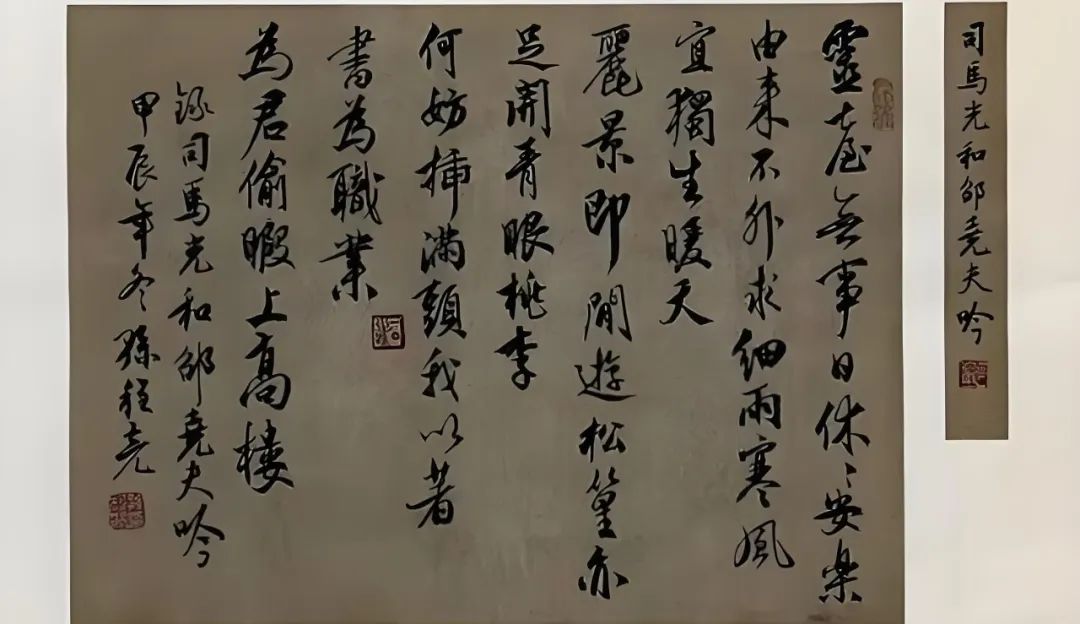 司馬光和邵堯夫吟
靈臺無事日休〻安樂
由来不外求細雨寒風
宜獨坐暖天
麗景即閒遊松篁亦
足開青眼桃李
何妨插滿頭我以著
書為職業
為君偷暇上高樓
錄司馬光和邵堯夫吟
甲辰年冬孫程堯